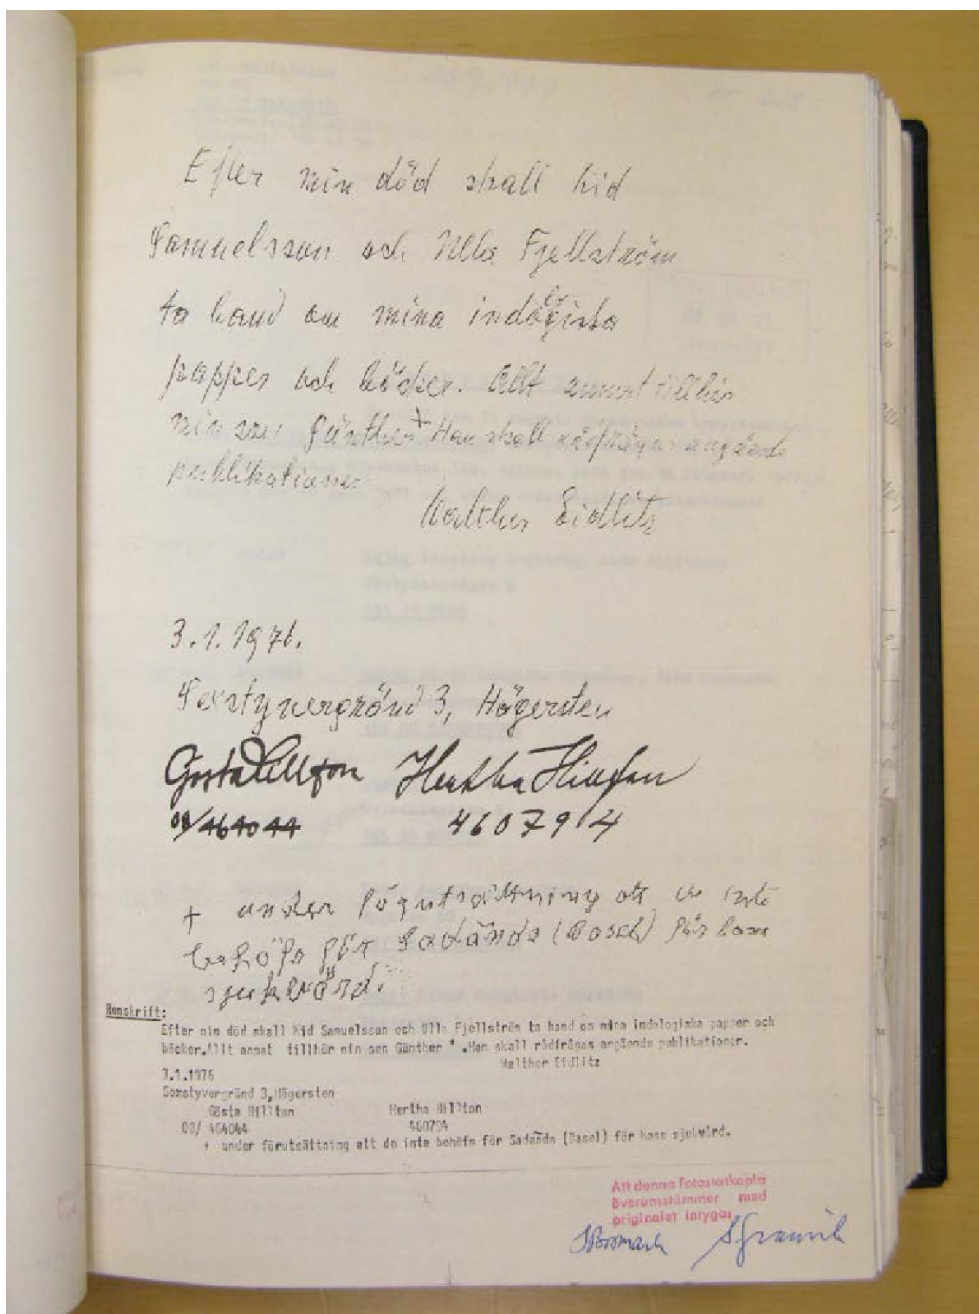 Efter min död skall Kid
Samuelsson och Ulla Fjellström
ta hand om mina indologista
papper och böcker. Allt annat tillhör
min son Günther + Han skall rådfrågas angående
publikationer
Walther Eidlitz
3.1.1976.
Somstyvergränd 3, Högersten
Gösta Hillton Hertha Hillton
08/464044 460794
+ under förutsättning att de inte
behöfs för Sadānda (Basel) för hans
sjukvård.
Renskrift:
Efter min död skall Kid Samuelsson och Ulla Fjellström ta hand om mina indologiska papper och
böcker.Allt annat tillhör min son Günther + .Han skall rådfrågas angående publikationer.
Walther Eidlitz
3.1.1976
Somstyvergränd 3,Högersten
Gösta Hillton Hertha Hillton
08/ 464044 460794
+ under förutsättning att de inte behöfs för Sadanda (Basel) för hans sjukvård.
Att denna fotostatkopia
överensstämmer med
originalet intygas